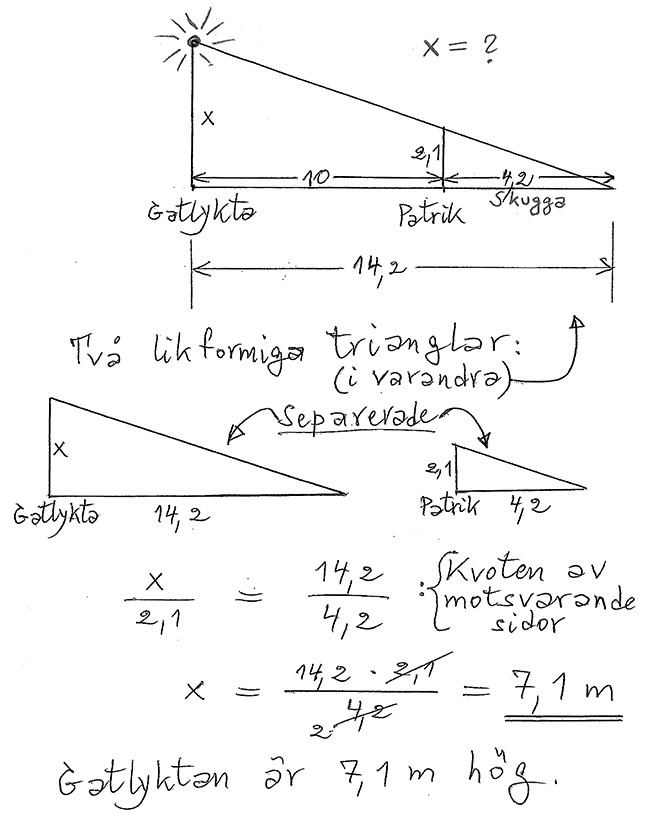 x = ?
x
2,1
10
4,2
Gatlykta
Patrik
Skugga
14,2
Två likformiga trianglar:
(i varandra)
Separerade
x
2,1
Gatlykta
14,2
Patrik
4,2
x/2,1 = 14,2/4,2 : { Kvoten av
motsvarande
sidor
x = 14,2 · 2,1 / 4,2 2 = 7,1 m
Gatlyktan är 7,1 m hög.